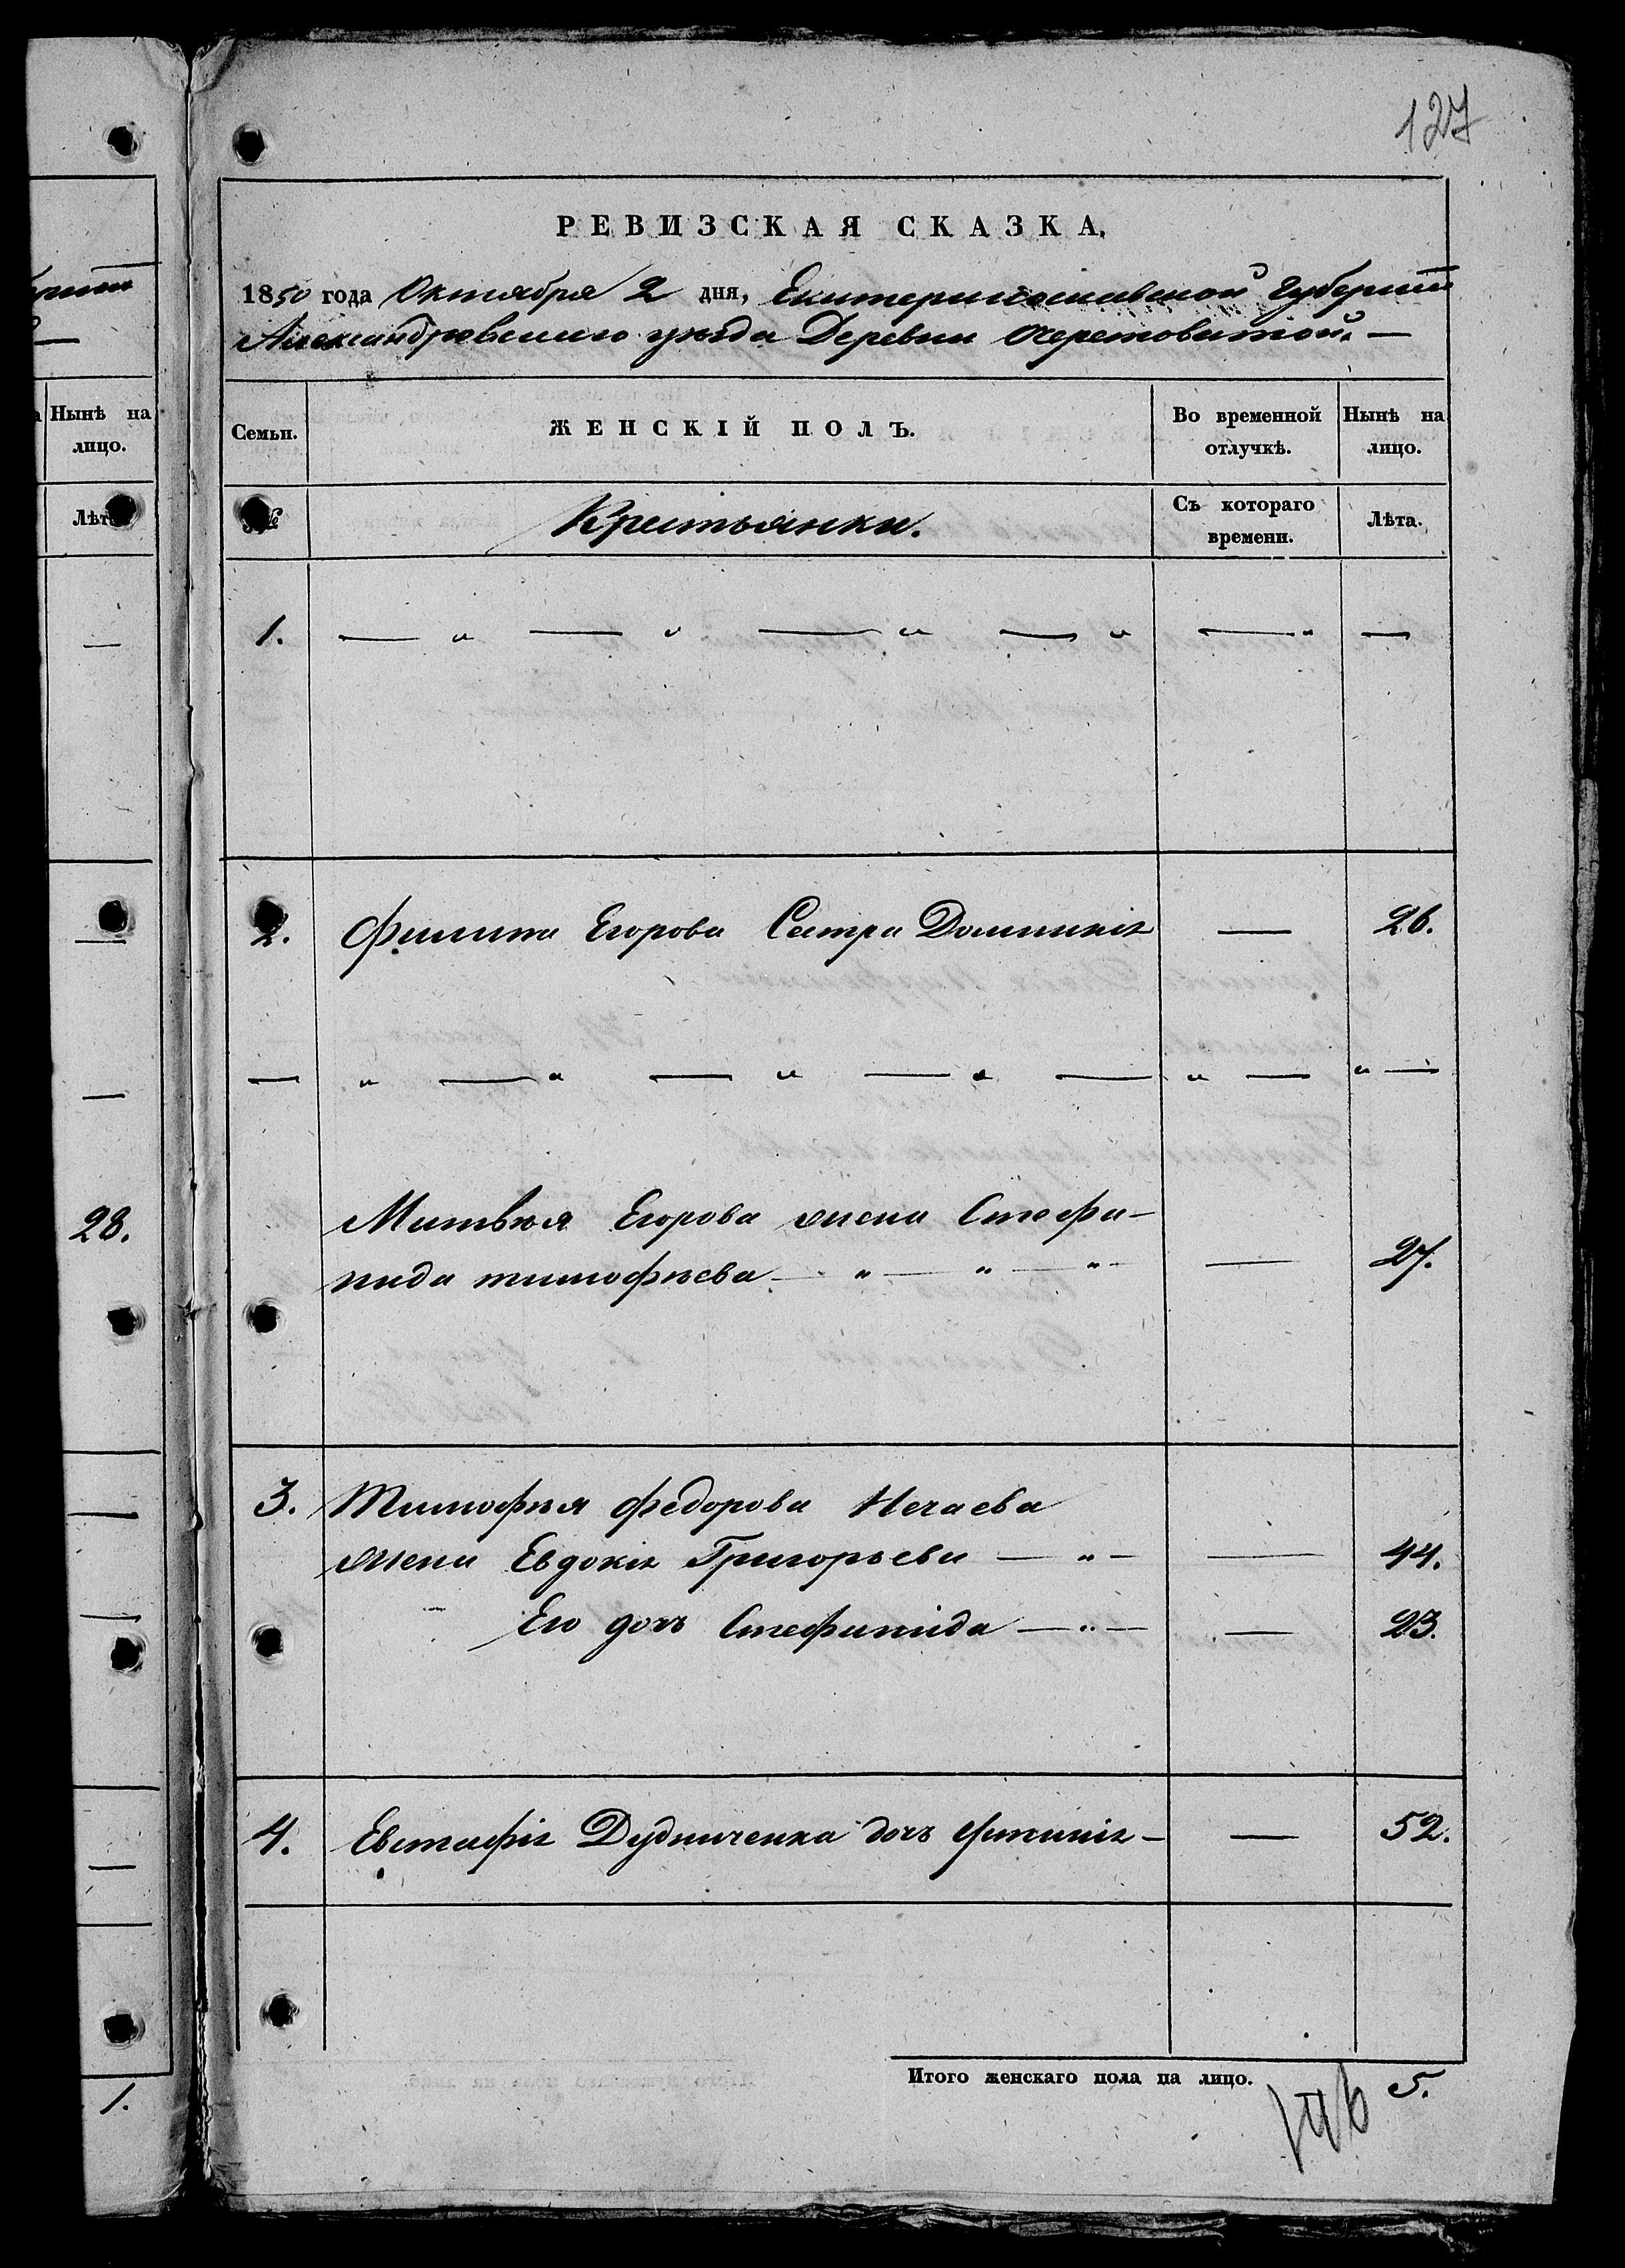 127
РЕВИЗСКАЯ СКАЗКА,
1850 года Октября 2 дня, Екатеринославской Губернии
Александровского уѣзда Деревни Очеретоватой. —
Нынѣ на лицо.
Лѣта
28.
1.
Семьи.
ЖЕНСКІЙ ПОЛЪ.
Во временной отлучкѣ.
Нынѣ на лицо.
№
Крестьянки.
Съ котораго времени.
Лѣта.
1. — " — " — " — " — " —
2. Филипа Егорова Сестра Домникія — 26.
— " — " — " — " — " — " —
Матвѣя Егорова жена Стефа-
нида тимофѣева — " — " — " — — 27.
3. Тимофѣя Федорова Нечаева
Жена Евдокія Григорьева — " — — 44.
Его дочь Стефанида — " — — 23.
4. Евстафія Дудниченка дочь Фотинія — — 52.
Итого женскаго пола на лицо. 5.